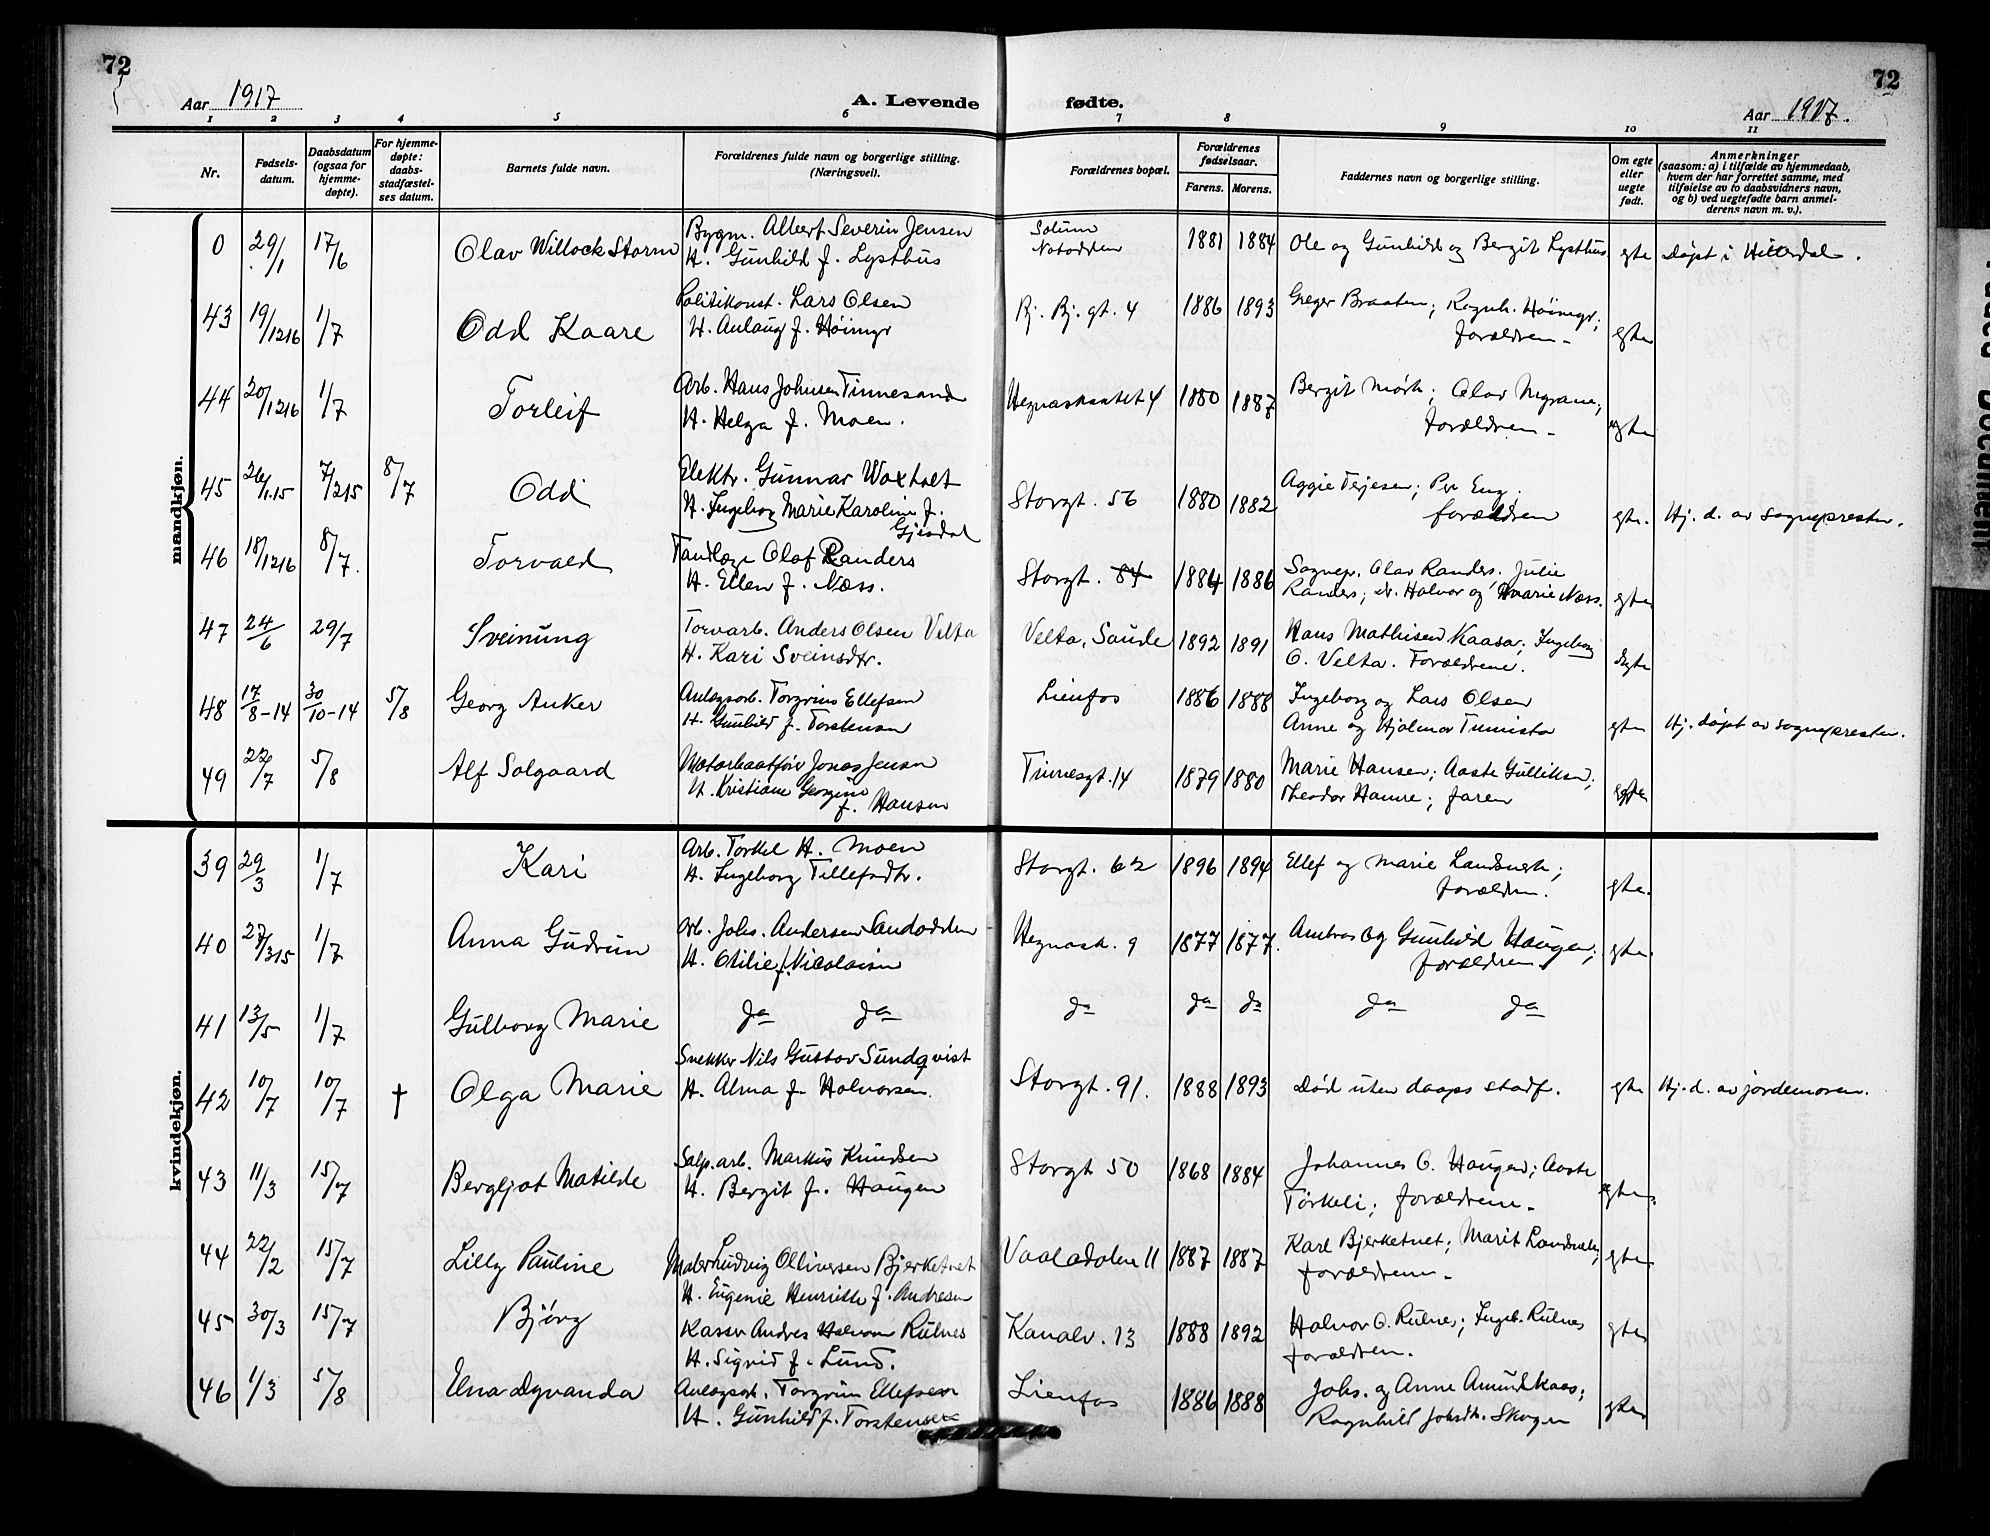 72
72
Aar 1917
A. Levende fødte.
Aar 1917.
1 2 3 4 5 6 7 8 9 10 11
Nr.
Fødsels-
datum.
Daabsdatum
(ogsaa for
hjemme-
døpte).
For hjemme-
døpte:
daabs-
stadfæstel-
ses datum.
Barnets fulde navn.
Forældrenes fulde navn og borgerlige stilling.
(Næringsvei).
Forældrenes bopæl.
Forældrenes
fødselsaar.
Farens. Morens.
Faddernes navn og borgerlige stilling.
Om egte
eller
uegte
født.
Anmerkninger
(saasom: a) i tilfælde av hjemmedaab,
hvem der har forrettet samme, med
tilføielse av to daabsvidners navn,
og b) ved uegtefødte barn anmel-
derens navn m. v.).
mandkjøn.
0 29/1 17/6 Olav Willock Storm Bygm. Albert Severin Jensen Solum 1881 1884 Ole og Gunhild og Bergit Lysthus egte Døpt i Hitterdal.
H. Gunhild f. Lysthus Notodden
43 19/12 16 1/7 Odd Kaare Politikonst. Lars Olsen Bj. Bj. gt. 4 1886 1893 Greger Braaten; Ragnh. Høimyr; egte
H. Aulaug f. Høimyr forældrene
44 20/12 16 1/7 Torleif Arb. Hans Johnsen Tinnesand 4 1880 1887 Bergit Mørk; Olav Myrane; egte
H. Helga f. Moen. forældrene
45 26/1 15 7/2 15 8/7 Odd Elektr. Gunnar Woxholt Storgt. 56 1880 1882 Aggie Tejesen; Per Eng; egte. Hj. d. av sognepresten.
H. Ingeborg Marie Karoline f. forældrene
Gjesdal
46 18/12 16 8/7. Torvald Tandlæge Olaf Randers Storgt. 84 1884 1886 Sognepr. Olav Randers, Julie egte
H. Ellen f. Næss. Randers; Halvor og Marie Næss.
47 24/6 29/7 Sveinung Torvarb. Anders Olsen Velta Velta, Saude 1892 1891 Hans Mathisen Kaasa; Ingeborg egte
H. Kari Sveinsdtr. O. Velta. Forældrene.
48 17/8-14 30/10-14 5/8 Georg Anker Anlægsarb. Torgrim Ellefsen Lienfos 1886 1888 Ingeborg og Lars Olsen egte Hj. døpt av sognepresten.
H. Gunhild f. Torstensen Anne og Hjalmar
49 22/7 5/8 Alf Solgaard Motorbaatfør Jonas Jensen Tinnesgt. 14 1879 1880 Marie Hansen; Aaste Gulliksen; egte
H. Kristiane Georgine Theodor Hamre; faren
f. Hansen
kvindekjøn.
39 29/3 1/7 Kari Arb. Torkel H. Moen Storgt. 62 1896 1894 Ellef og Marie Landsverk; egte.
H. Ingeborg Tillefsdtr. forældren.
40 27/3 15 1/7 Anna Gudrun Arb. Johs. Andersen Sandodden Hegnask. 9 1877 1877. Andreas og Gunhild Haugen; egte.
H. Otilie f. Nicolaisen forældrene
41 13/5 1/7 Gulborg Marie Do Do Do Do Do Do Do
42 10/7 10/7 † Olga Marie Snekker Nils Gustav Sundqvist Storgt. 91. 1888 1893 Død uten daaps stadf. egte Hj. d. av jordemoren.
H. Alma f. Halvorsen.
43 11/3 15/7 Bergljot Matilde Salp. arb. Markus Knudsen Storgt 50 1868 1884 Johannes O. Haugen; Aaste egte.
H. Bergit f. Haugen Torkeli; forældrene
44 22/2 15/7 Lilly Pauline Maler Ludvig Olliversen Bjerketvet Vaaladalen 11 1887 1887 Karl Bjerketvet; Marit Landsverk; egte
H. Eugenie Henriette f. Andresen forældrene
45 30/3 15/7 Bjørg Kasser Andres Halvorsen Rulnes Kanalv. 13 1888 1892 Halvor O. Rulnes; Ingeb. Rulnes egte
H. Sigrid f. Lund. forældren.
46 1/3 5/8 Elna Dyvanda Anlægsarb. Torgrim Ellefsen Lienfos 1886 1888 Johs. og Anne Amund Kaas; egte
H. Gunhild f. Torstensen Ragnhild Johsdtr. Skogen